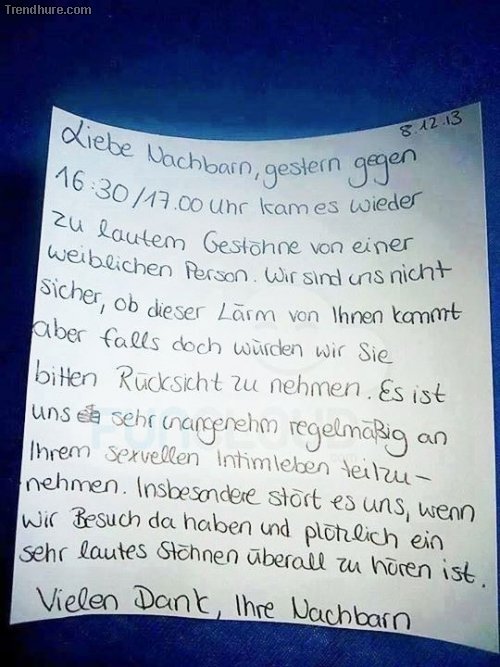 Trendhure.com
8.12.13
Liebe Nachbarn, gestern gegen
16:30/17.00 Uhr kam es wieder
zu lautem Gestöhne von einer
weiblichen Person. Wir sind uns nicht
sicher, ob dieser Lärm von Ihnen kommt
aber falls doch würden wir Sie
bitten Rücksicht zu nehmen. Es ist
uns sehr unangenehm regelmäßig an
Ihrem sexuellen Intimleben teilzu-
nehmen. Insbesondere stört es uns, wenn
wir Besuch da haben und plötzlich ein
sehr lautes Stöhnen überall zu hören ist.
Vielen Dank, Ihre Nachbarn
FUNCLOUD